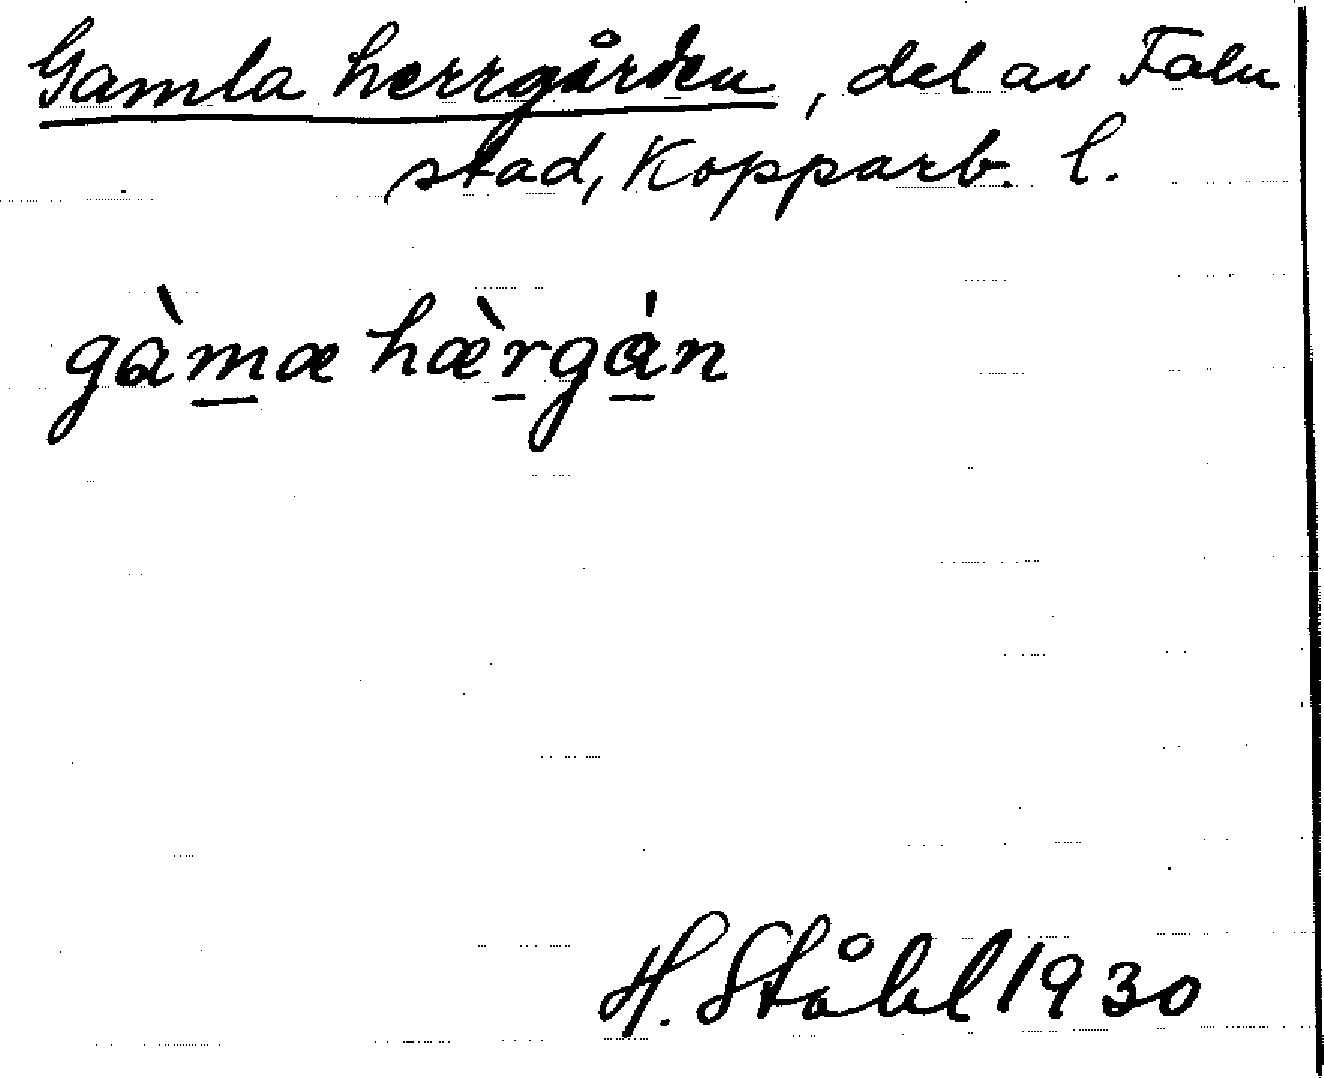 Gamla herrgården, del av Falu
stad, Kopparb. l.
gàm̲æ hæ̀r̲gǻ̲n
H. Ståhl 1930